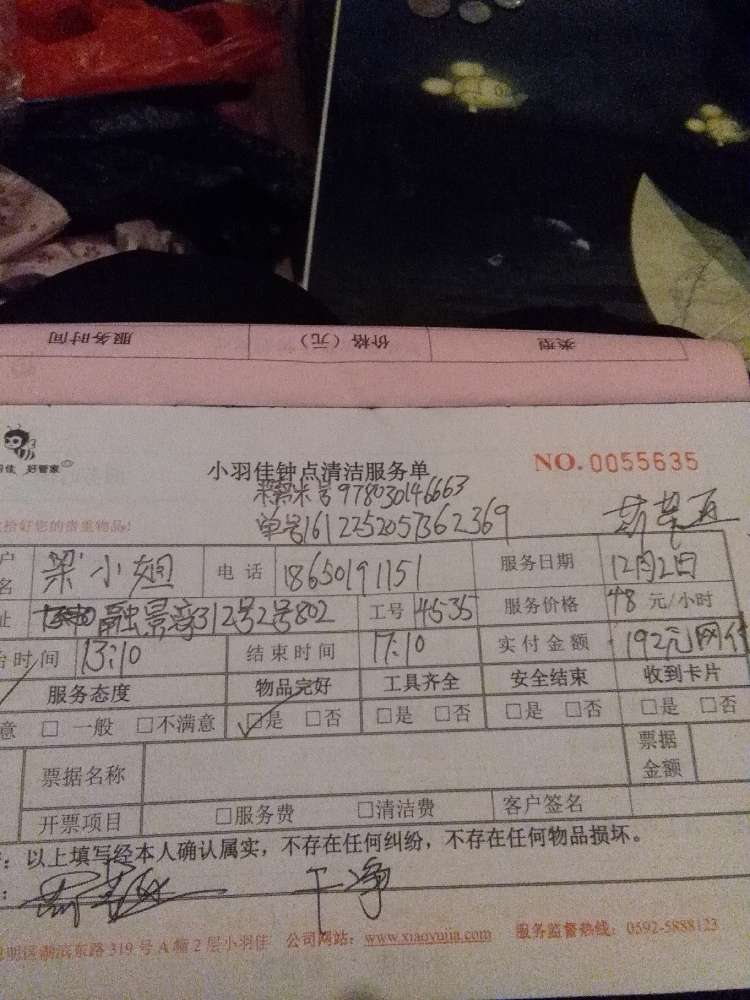 服务时间 价格（元） 类型
羽佳 好管家
小羽佳钟点清洁服务单 NO. 0055635
号978030146663
拾好您的贵重物品!
单号1612252057362369
梁小姐 电话 18650191151 服务日期 12月2日
融景湾312号2号802 工号 4535 服务价格 48 元/小时
时间 13:10 结束时间 17:10 实付金额 192元网付
服务态度 物品完好 工具齐全 安全结束 收到卡片
意 □ 一般 □不满意 □是 □否 □是 □否 □是 □否 □是 □否
票据名称 票据金额
开票项目 □服务费 □清洁费 客户签名
：以上填写经本人确认属实，不存在任何纠纷，不存在任何物品损坏。
： 干净
明区湖滨东路 319 号 A 幢 2 层小羽佳 公司网站：www.xiaoyujia.com 服务监督热线：0592-5888123